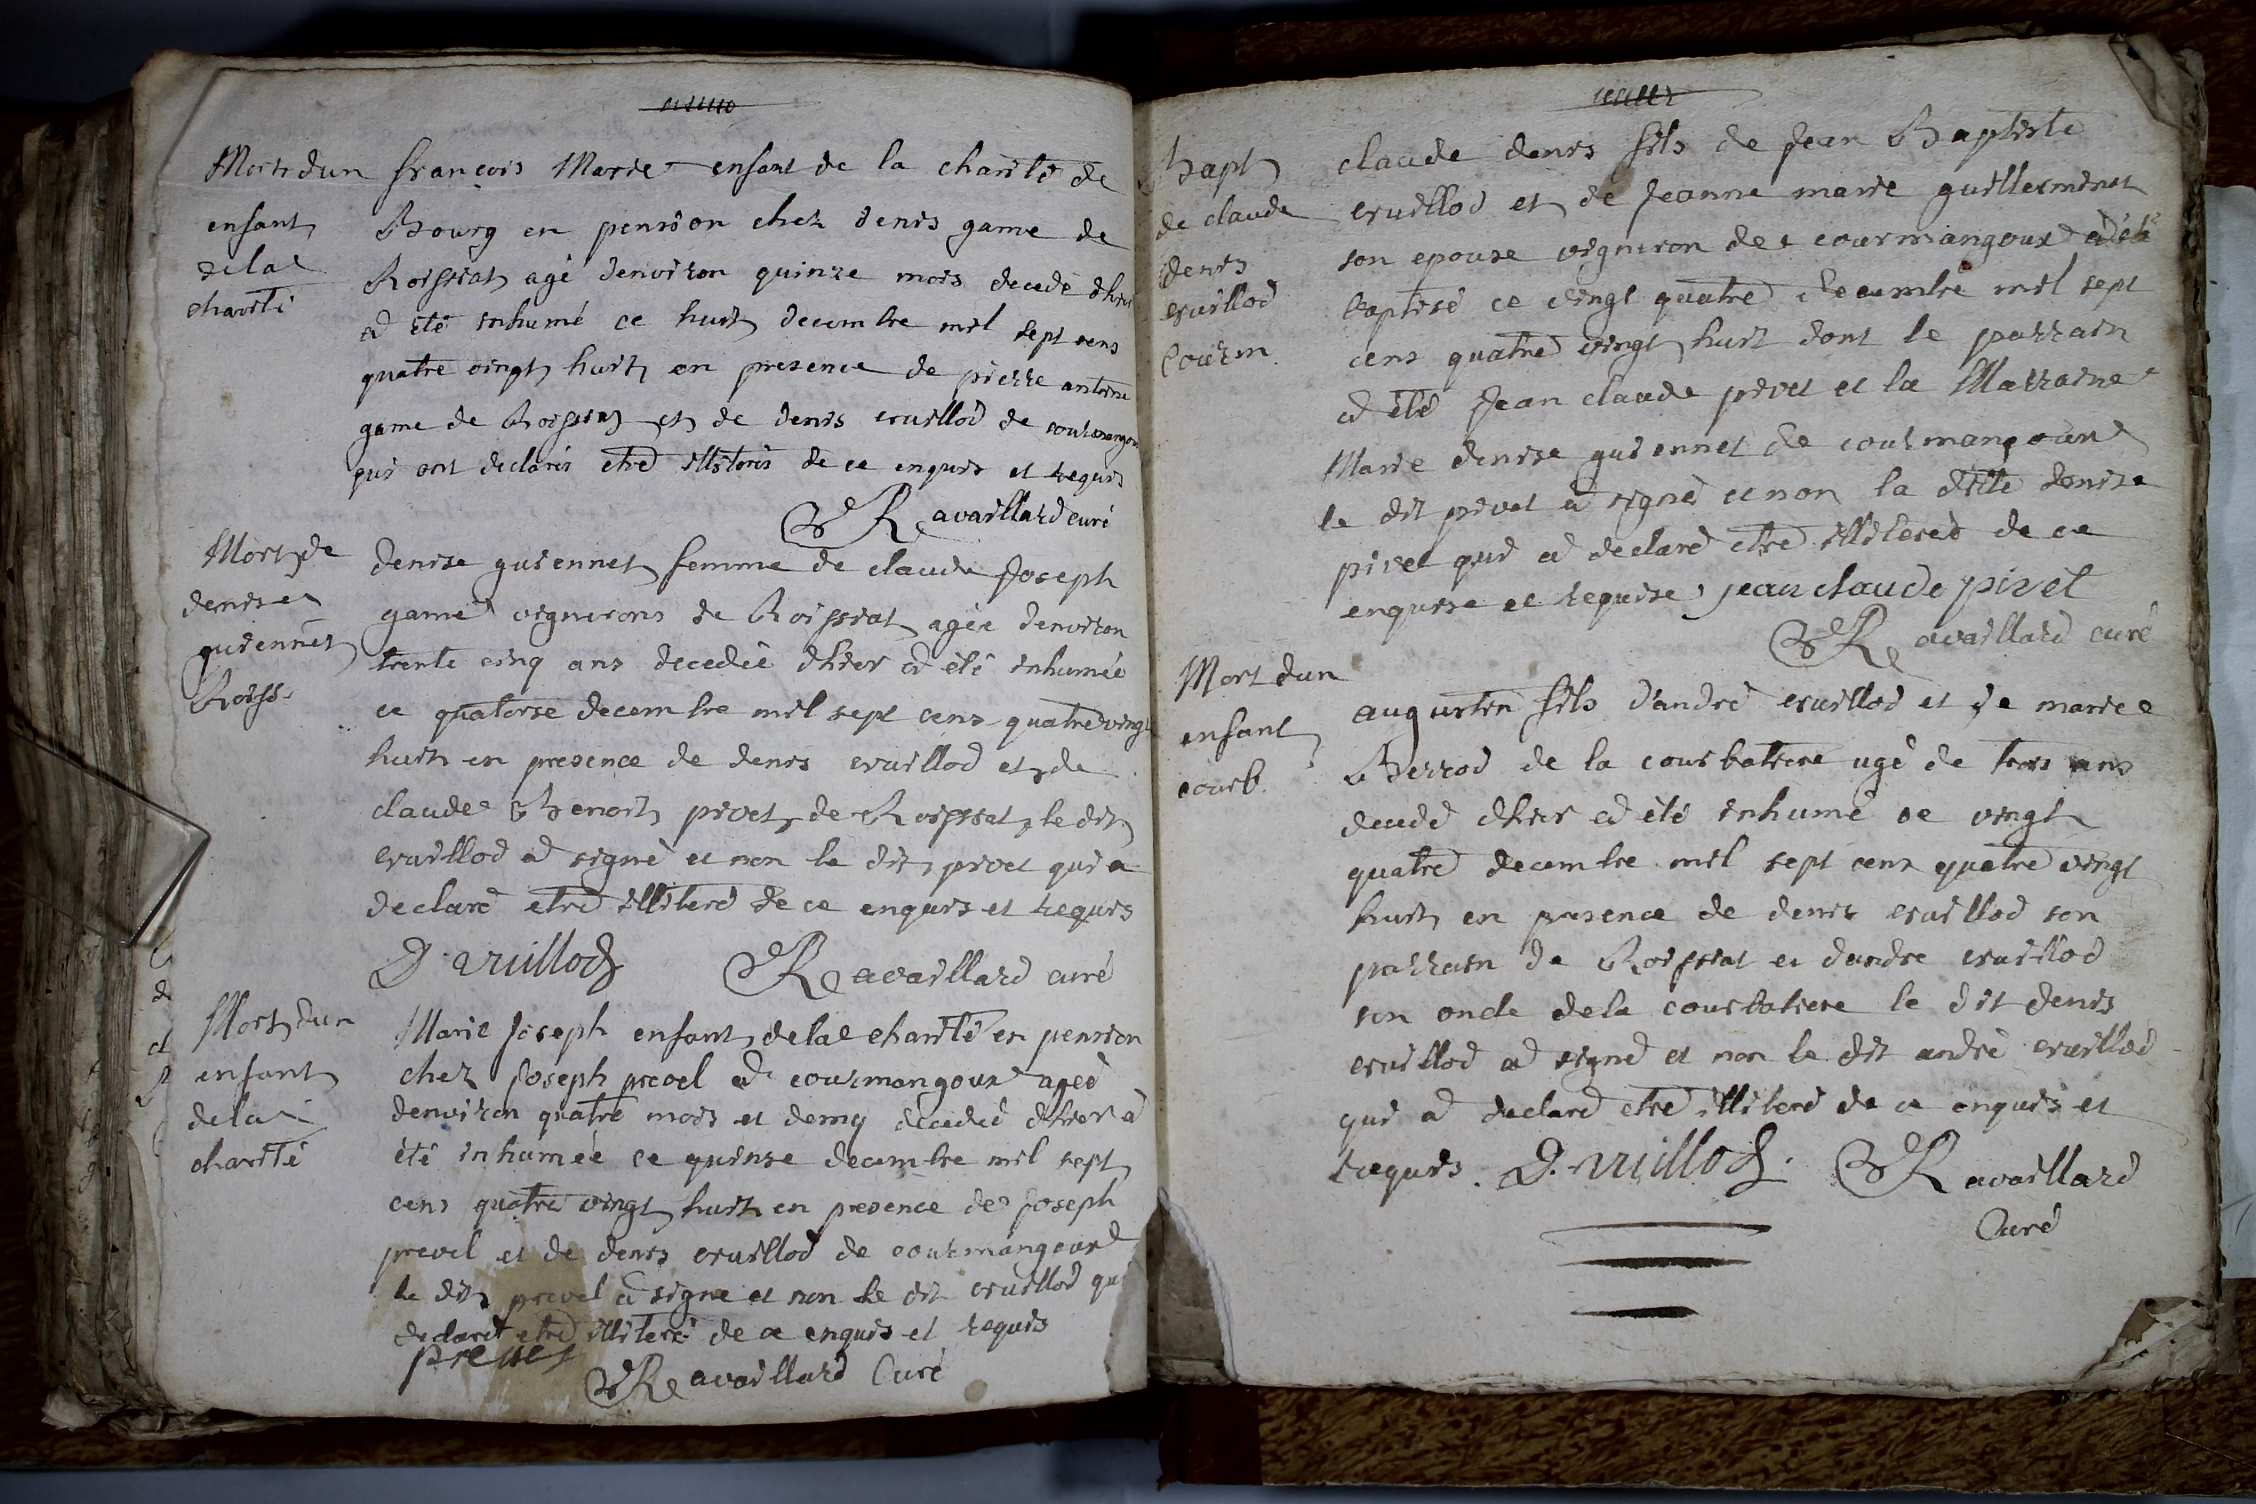 Mort dun
enfant
dela
charité
françois Marie enfant de la charité de
Bourg en pension chez denis game de
Roissiat agé denviron quinze mois decedé dhier
a été inhumé ce huit decembre mil sept cens
quatre vingt huit en presence de pierre antoine
game de Roissiat et de denis vuillod de courmangoux
qui ont declarés etre illiterés de ce enquis et requis
Ravaillard curé
Mort de
denise
guiennet
Roiss.
denise guiennet femme de claude Joseph
game vignerons de Roissiat agée denviron
trente cinq ans decedée dhier a été inhumée
ce quatorse decembre mil sept cens quatre vingt
huit en presence de denis vuillod et de
claude Benoit pivet de Roissiat le dit
vuillod a signé et non le dit pivet qui a
declaré etre illiteré de ce enquis et requis
D. vuillod Ravaillard curé
Mort dun
enfant
dela
charité
Marie Joseph enfant dela charité en pension
chez Joseph prevel a courmangoux ageé
denviron quatre mois et demy decedeé dhier a
été inhumée ce quinse decembre mil sept
cens quatre vingt huit en presence de Joseph
prevel et de denis vuillod de courmangoux
le dit prevel a signe et non le dit vuillod qui
declare etre illiteré de ce enquis et requis
Ravaillard Curé
bapt
de claude
denis
vuillod
Courm.
claude denis fils de Jean Baptiste
vuillod et de Jeanne marie guillerminet
son epouse vigneron de courmangoux a été
baptisé ce vingt quatre decembre mil sept
cens quatre vingt huit dont le parrain
a été Jean claude pivet et la Marraine
Marie denise guiennet de courmangoux
le dit pivet a signé et non la dite denise
pivet qui a declaré etre illitereé de ce
enquise et requise jean claude pivet
Ravaillard curé
Mort dun
enfant
courb.
augustin fils d'andré vuillod et de marie
Berrod de la courbatiere agé de trois ans
decedé dhier a été inhumé ce vingt
quatre decembre mil sept cens quatre vingt
huit en presence de denis vuillod son
parrain de Roissiat et dandre vuillod
son oncle dela courbatiere le dit denis
vuillod a signé et non le dit andré vuillod
qui a declaré etre illiteré de ce enquis et
requis. D. vuillod. Ravaillard
Curé